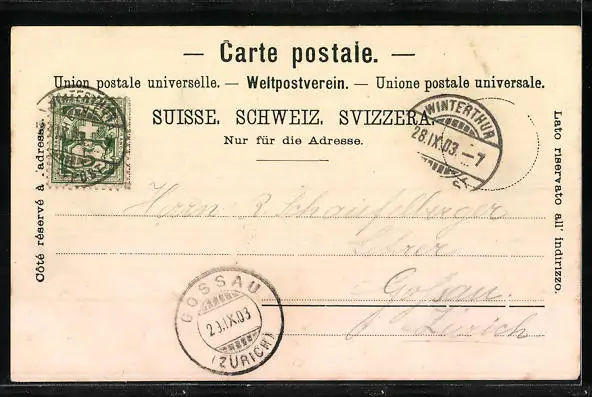 — Carte postale. —
Union postale universelle. — Weltpostverein. — Unione postale universale.
SUISSE. SCHWEIZ. SVIZZERA.
Nur für die Adresse.
Côté réservé à l'adresse.
Lato riservato all' indirizzo.
WINTERTHUR
WINTERTHUR
28.IX.03.–7
Herrn Schaufelberger
Lehrer
Gossau.
Zürich
GOSSAU
29.IX.03
(ZÜRICH)